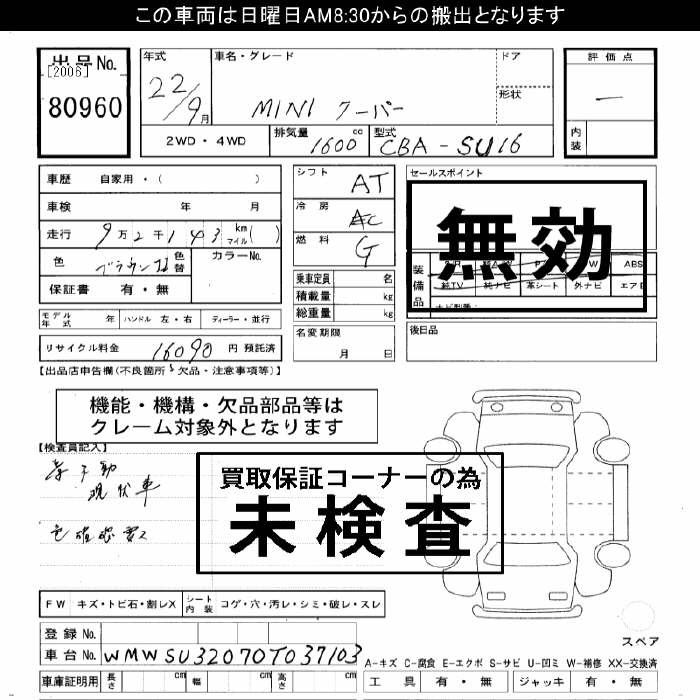 この車両は日曜日AM8:30からの搬出となります
出品No.
[2006]
80960
年式
22/9月
車名・グレード
MINI クーパー
ドア
形状
評価点
—
内装
2WD・4WD
排気量 1600 cc
型式 CBA-SU16
車歴 自家用・( )
車検 年 月
走行 9万2千143 km マイル( )
色 ブラウン 色替
カラーNo.
保証書 有・無
シフト AT
冷房 AC
燃料 G
乗車定員 名
積載量 kg
総重量 kg
名変期限 月 日
セールスポイント
無効
装備品
ABS
純TV 純ナビ 革シート 外ナビ エアB
後日品
モデル年式 年 ハンドル 左・右 ディーラー・並行
リサイクル料金 16090 円 預託済
【出品店申告欄(不良箇所・欠品・注意事項等)】
機能・機構・欠品部品等は
クレーム対象外となります
【検査員記入】
買取保証コーナーの為
未検査
不動
現状車
要確認
FW キズ・トビ石・割レX シート内装 コゲ・穴・汚レ・シミ・破レ・スレ
登録No.
車台No. WMWSU32070T037103
車庫証明用 長さ cm 幅 cm 高さ cm
スペア
A-キズ C-腐食 E-エクボ S-サビ U-凹ミ W-補修 XX-交換済
工具 有・無 ジャッキ 有・無